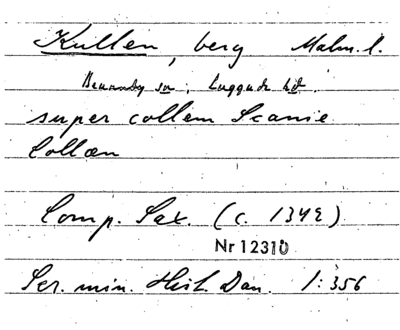 Kullen, berg Malm. l.
Brunnby sn, Luggude hd.
super collem Scanie
Collæn
Comp. Sax. (c. 1342)
Nr 12310
Scr. min. Hist. Dan. 1:356